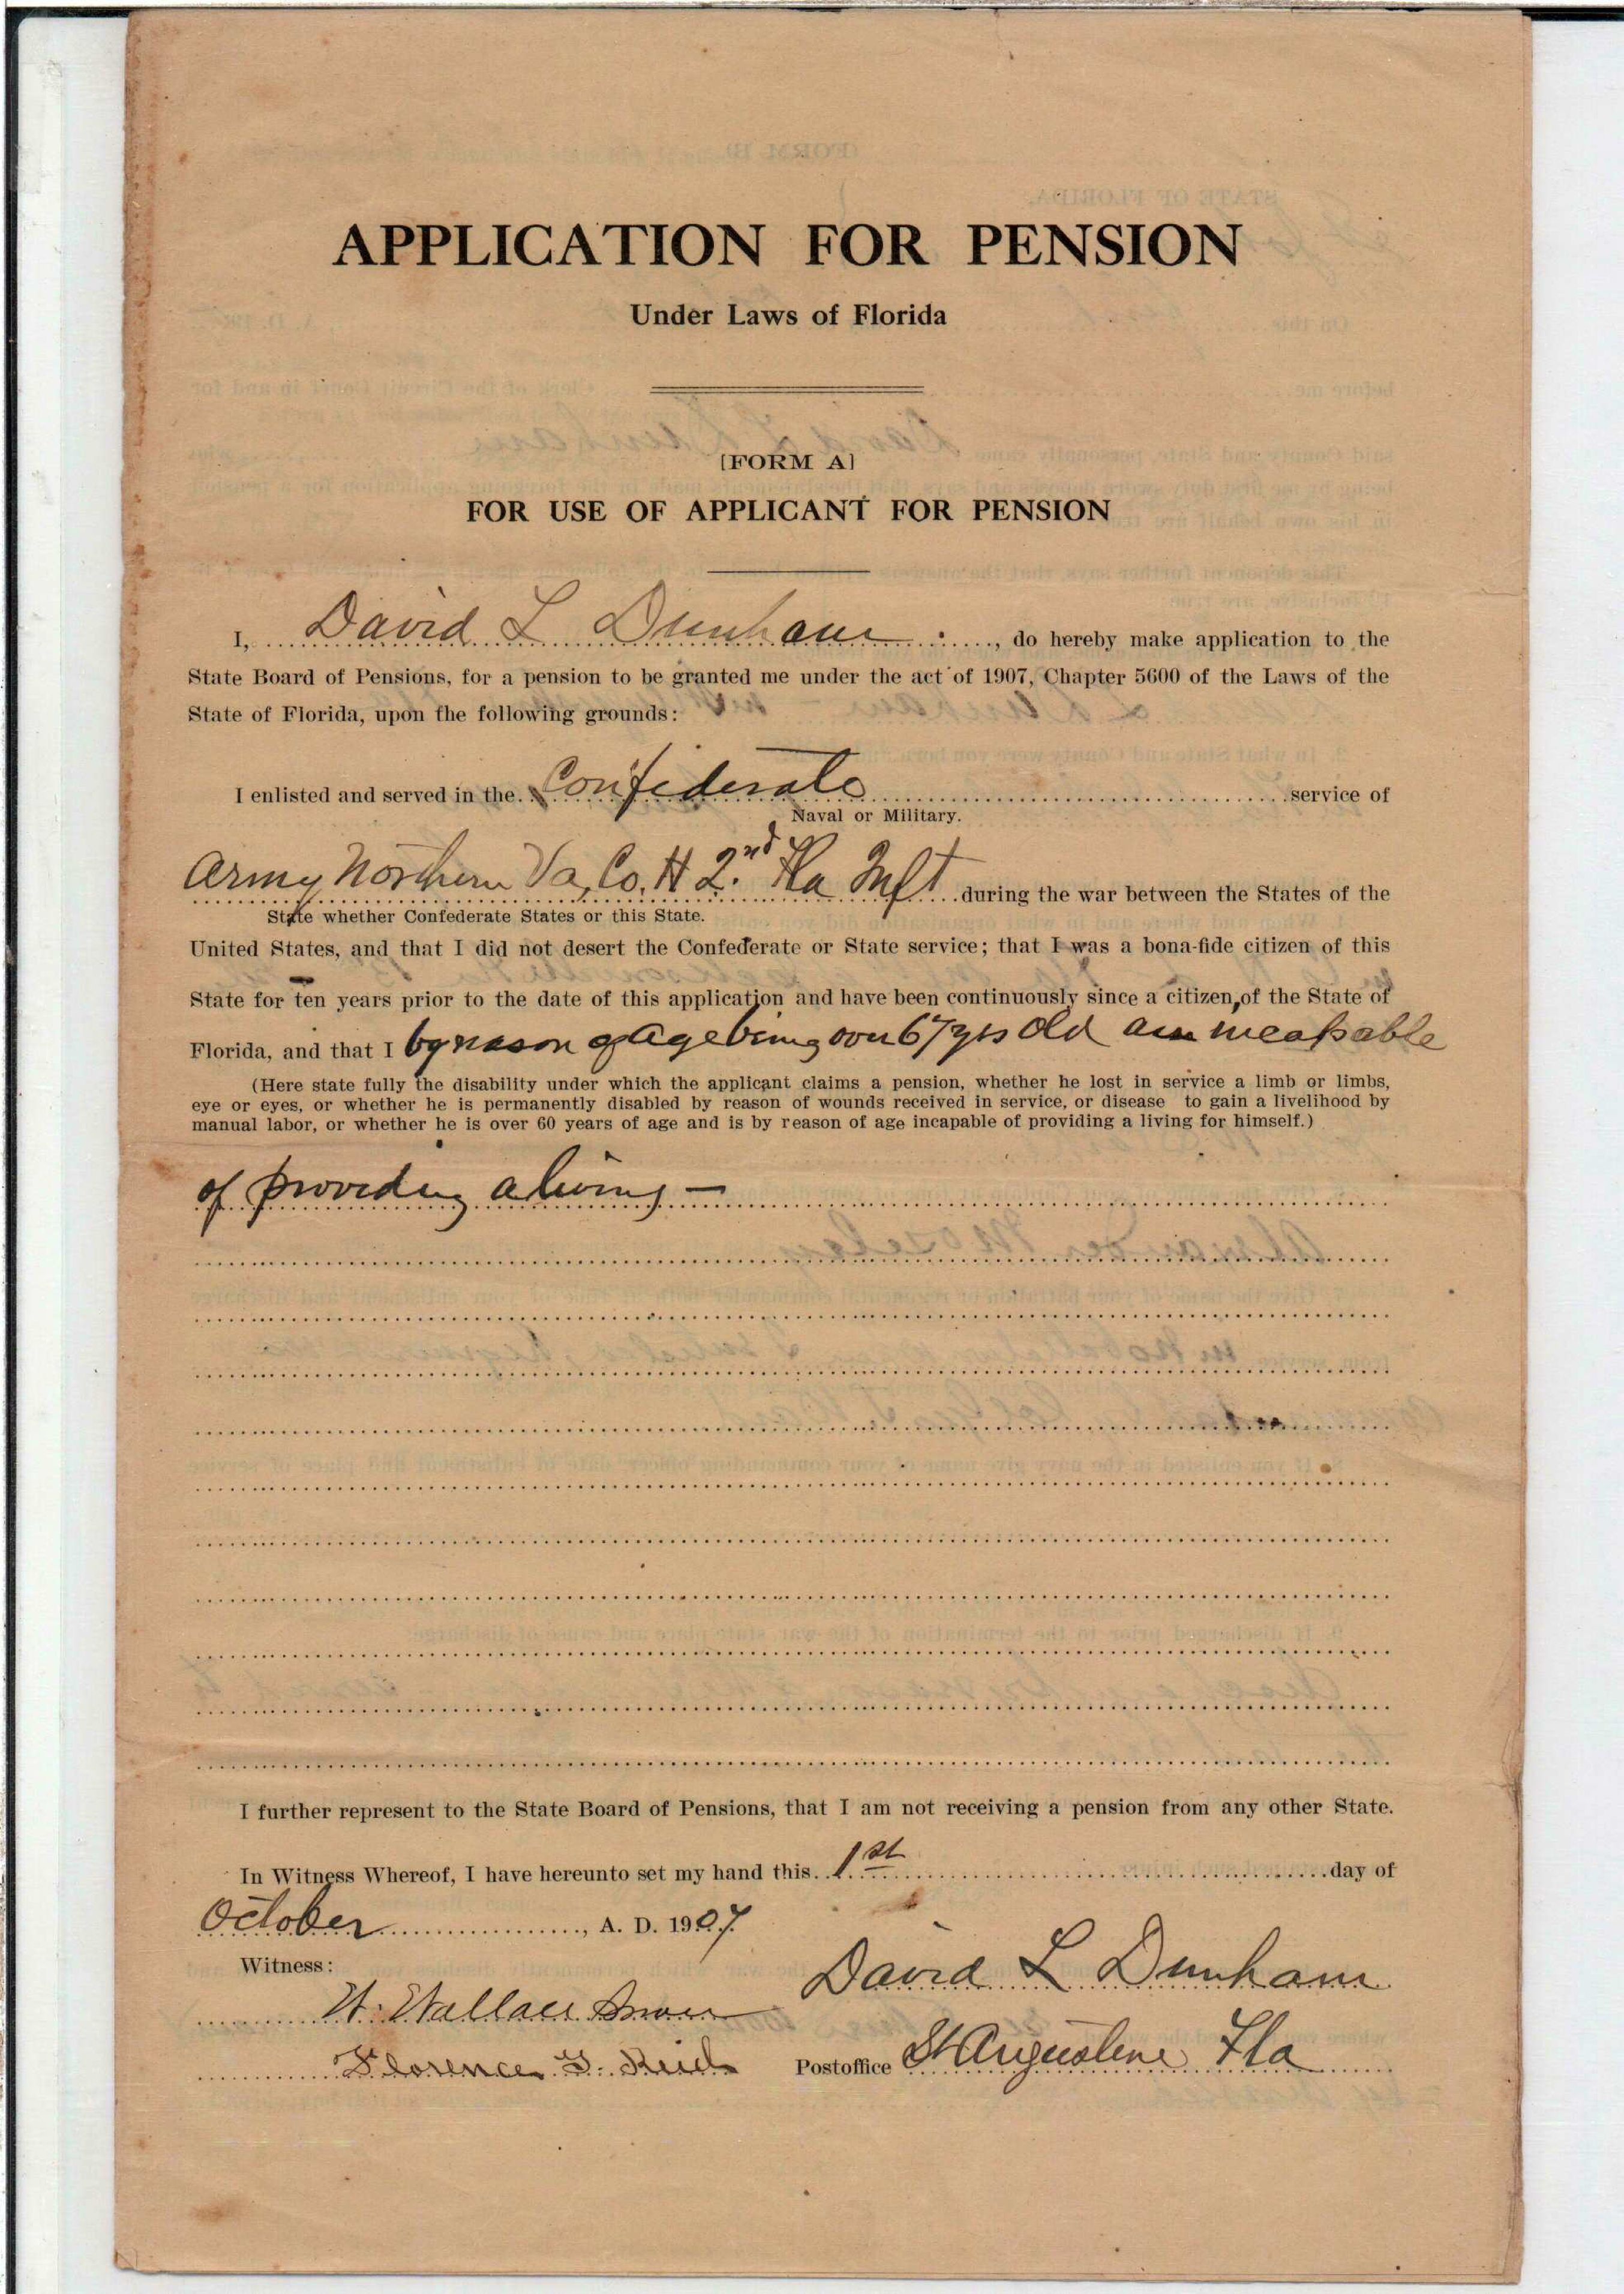 APPLICATION FOR PENSION
Under Laws of Florida
[FORM A]
FOR USE OF APPLICANT FOR PENSION
I, David L Dunham, do hereby make application to the
State Board of Pensions, for a pension to be granted me under the act of 1907, Chapter 5600 of the Laws of the
State of Florida, upon the following grounds:
I enlisted and served in the Confederate service of
Naval or Military.
Army Northern Va, Co. H 2nd Fla Inft during the war between the States of the
State whether Confederate States or this State.
United States, and that I did not desert the Confederate or State service; that I was a bona-fide citizen of this
State for ten years prior to the date of this application and have been continuously since a citizen, of the State of
Florida, and that I by reason of age being over 67 yrs old am incapable
(Here state fully the disability under which the applicant claims a pension, whether he lost in service a limb or limbs,
eye or eyes, or whether he is permanently disabled by reason of wounds received in service, or disease to gain a livelihood by
manual labor, or whether he is over 60 years of age and is by reason of age incapable of providing a living for himself.)
of providing a living —
I further represent to the State Board of Pensions, that I am not receiving a pension from any other State.
In Witness Whereof, I have hereunto set my hand this 1st day of
October, A. D. 1907.
Witness:
David L Dunham
W. Wallace
Florence G. Reid
Postoffice St Augustine Fla